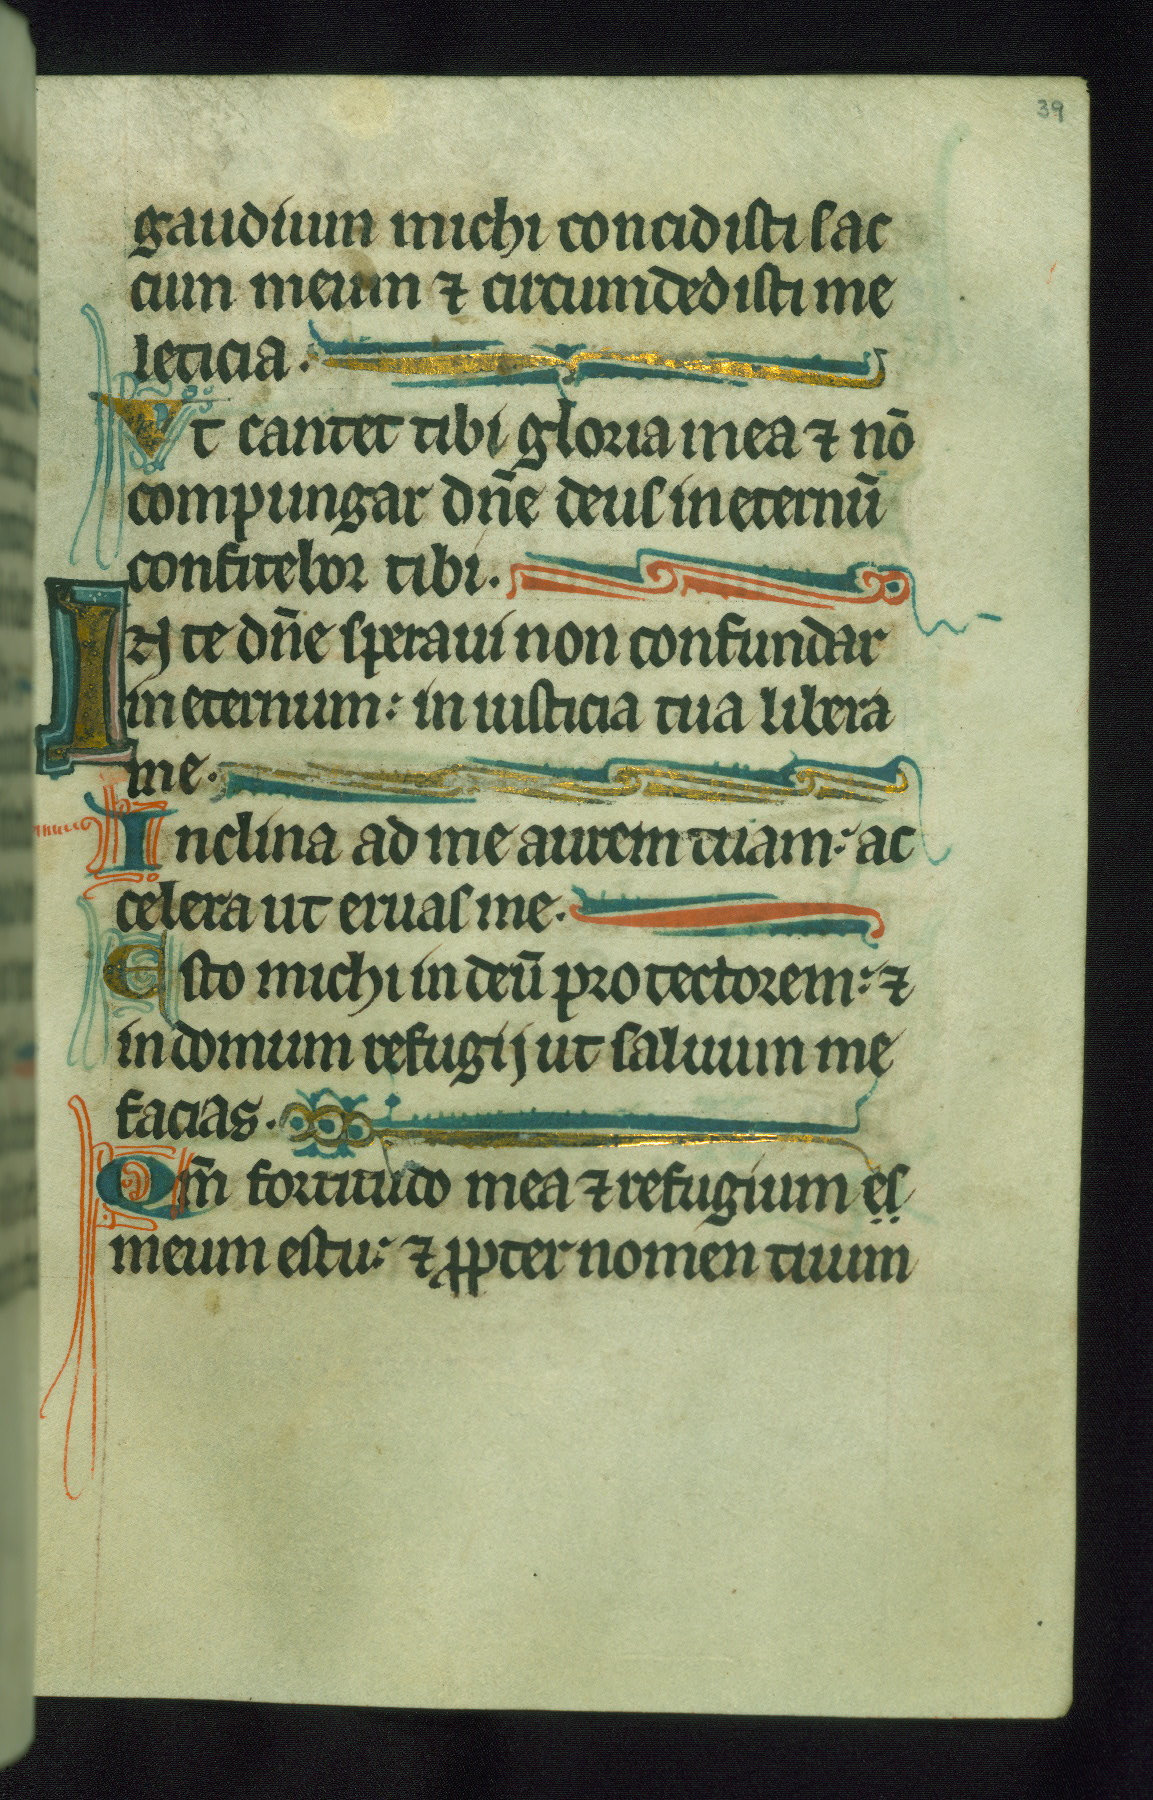 39
gaudium michi concidisti sac
cum meum ⁊ circumdedisti me
leticia.
Vt cantet tibi gloria mea ⁊ nō
compungar dn̄e deus in eternū
confitebor tibi.
IN te dn̄e speraui non confundar
in eternum: in iusticia tua libera
me.
Inclina ad me aurem tuam: ac
celera ut eruas me.
Esto michi in deū protectorem: ⁊
in domum refugij ut saluum me
facias.
Qm̄ fortitudo mea ⁊ refugium ẹṣ
meum es tu: ⁊ ꝓpter nomen tuum